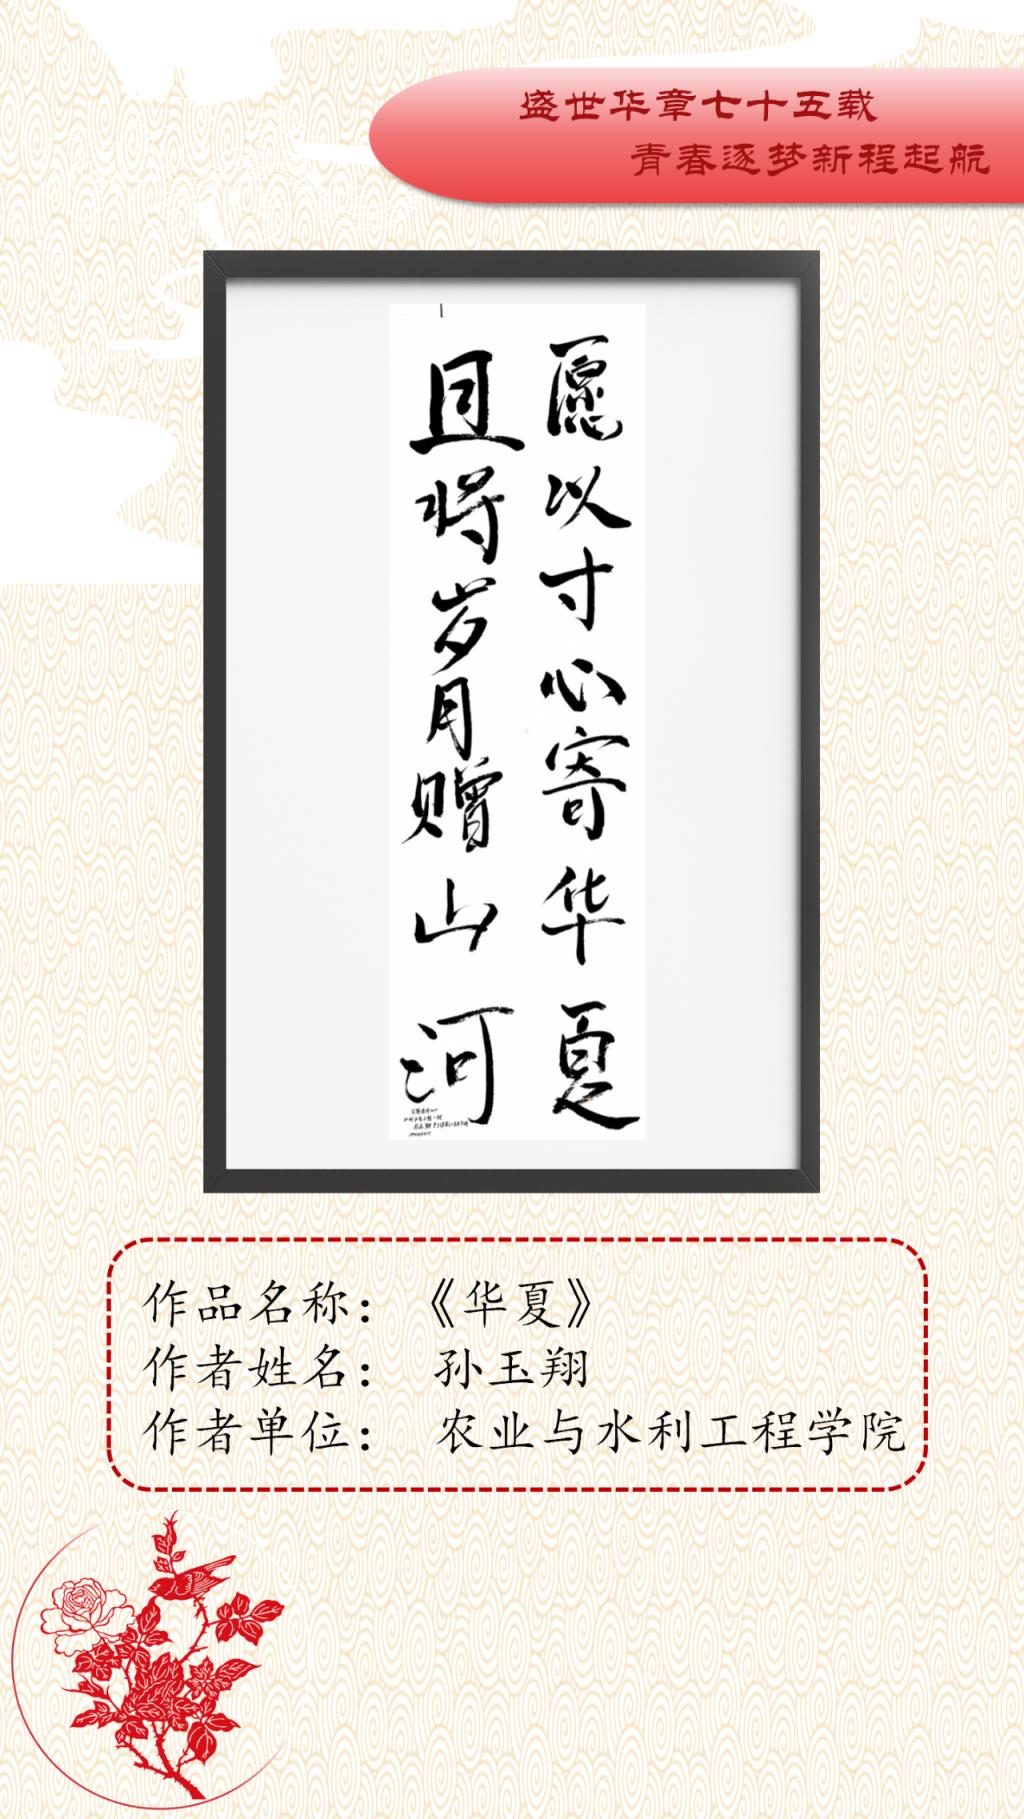 盛世华章七十五载
青春逐梦新程起航
愿以寸心寄华夏
且将岁月赠山河
作品名称：《华夏》
作者姓名： 孙玉翔
作者单位： 农业与水利工程学院